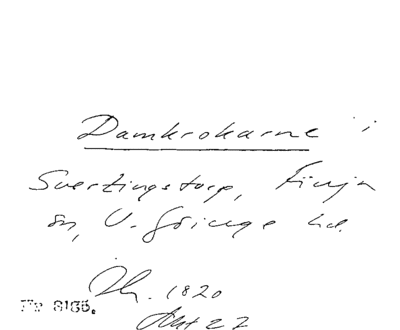 Damkrokarne i
Svertingstorp, Finja
sn, V. Göinge hd.
Jh. 1820
Akt 27